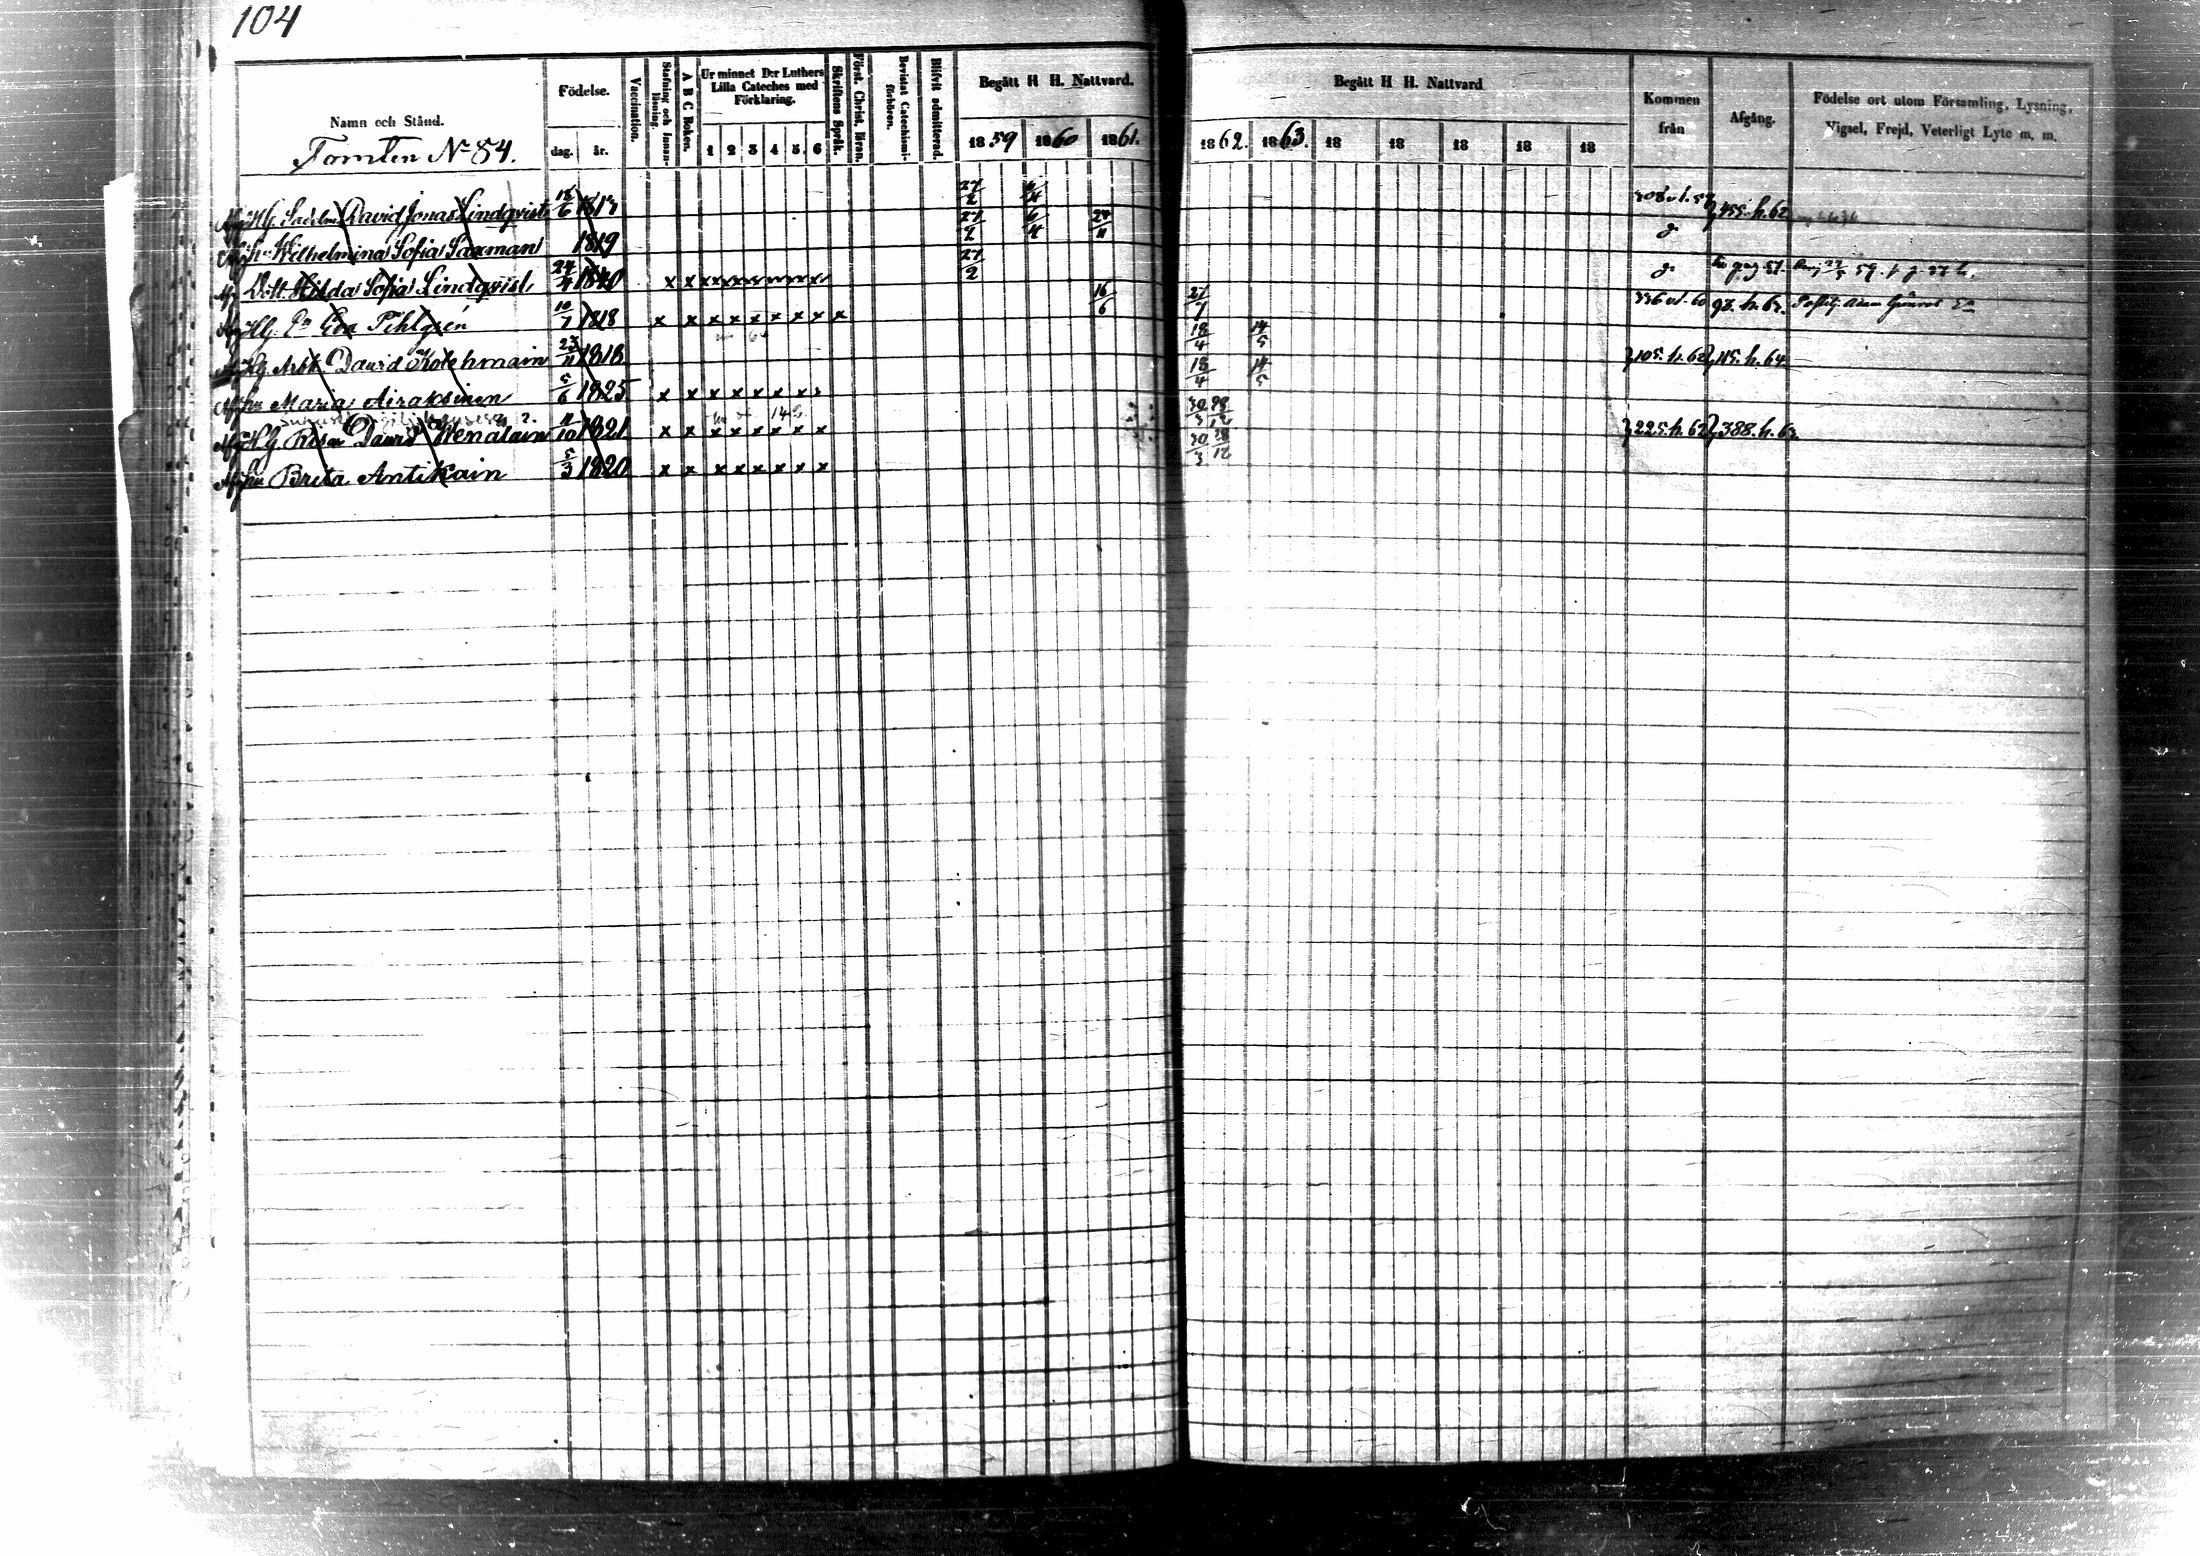 104
Namn och Stånd.
Tomten No 84.
Födelse.
dag. år.
Vaccination.
Stafning och Innanläsning.
A B C Boken.
Ur minnet D:r Luthers Lilla Cateches med Förklaring.
1 2 3 4 5 6
Skriftens Språk.
Först. Christ. läran.
Bevistat Catechismiförhören.
Blifvit admitterad.
Begått H H. Nattvard.
1859 1860 1861.
Begått H H. Nattvard
1862. 1863. 18 18 18 18 18
Kommen från
Afgång.
Födelse ort utom Församling, Lysning, Vigsel, Frejd, Veterligt Lyte m, m.
David Jonas Lindqvist 18/6 27/2 6/4 455. h. 62
Wilhelmina Sofia Saxman 1819 27/2 6/4 24/11
Dott. Hilda Sofia Lindqvist 24/4 1840 x x x x x x x x 27/2
Hg. Eva Pihlgrén 10/7 1818 x x x x x x x x x 16/6 21/7 336 60 92. h. 63.
Hg. Arbk. David Kolehmain 23/11 1818 18/4 14/5 105. h. 62 115. h. 64.
Maria Airaksinen 5/6 1825 x x x x x x x x 18/4 14/5
Hg. David Wenäläin 11/10 1821 x x x x x x x x 30/3 28/12 225. h. 62 388. h. 63.
Brita Antikain 5/3 1820 x x x x x x x x 30/3 28/12